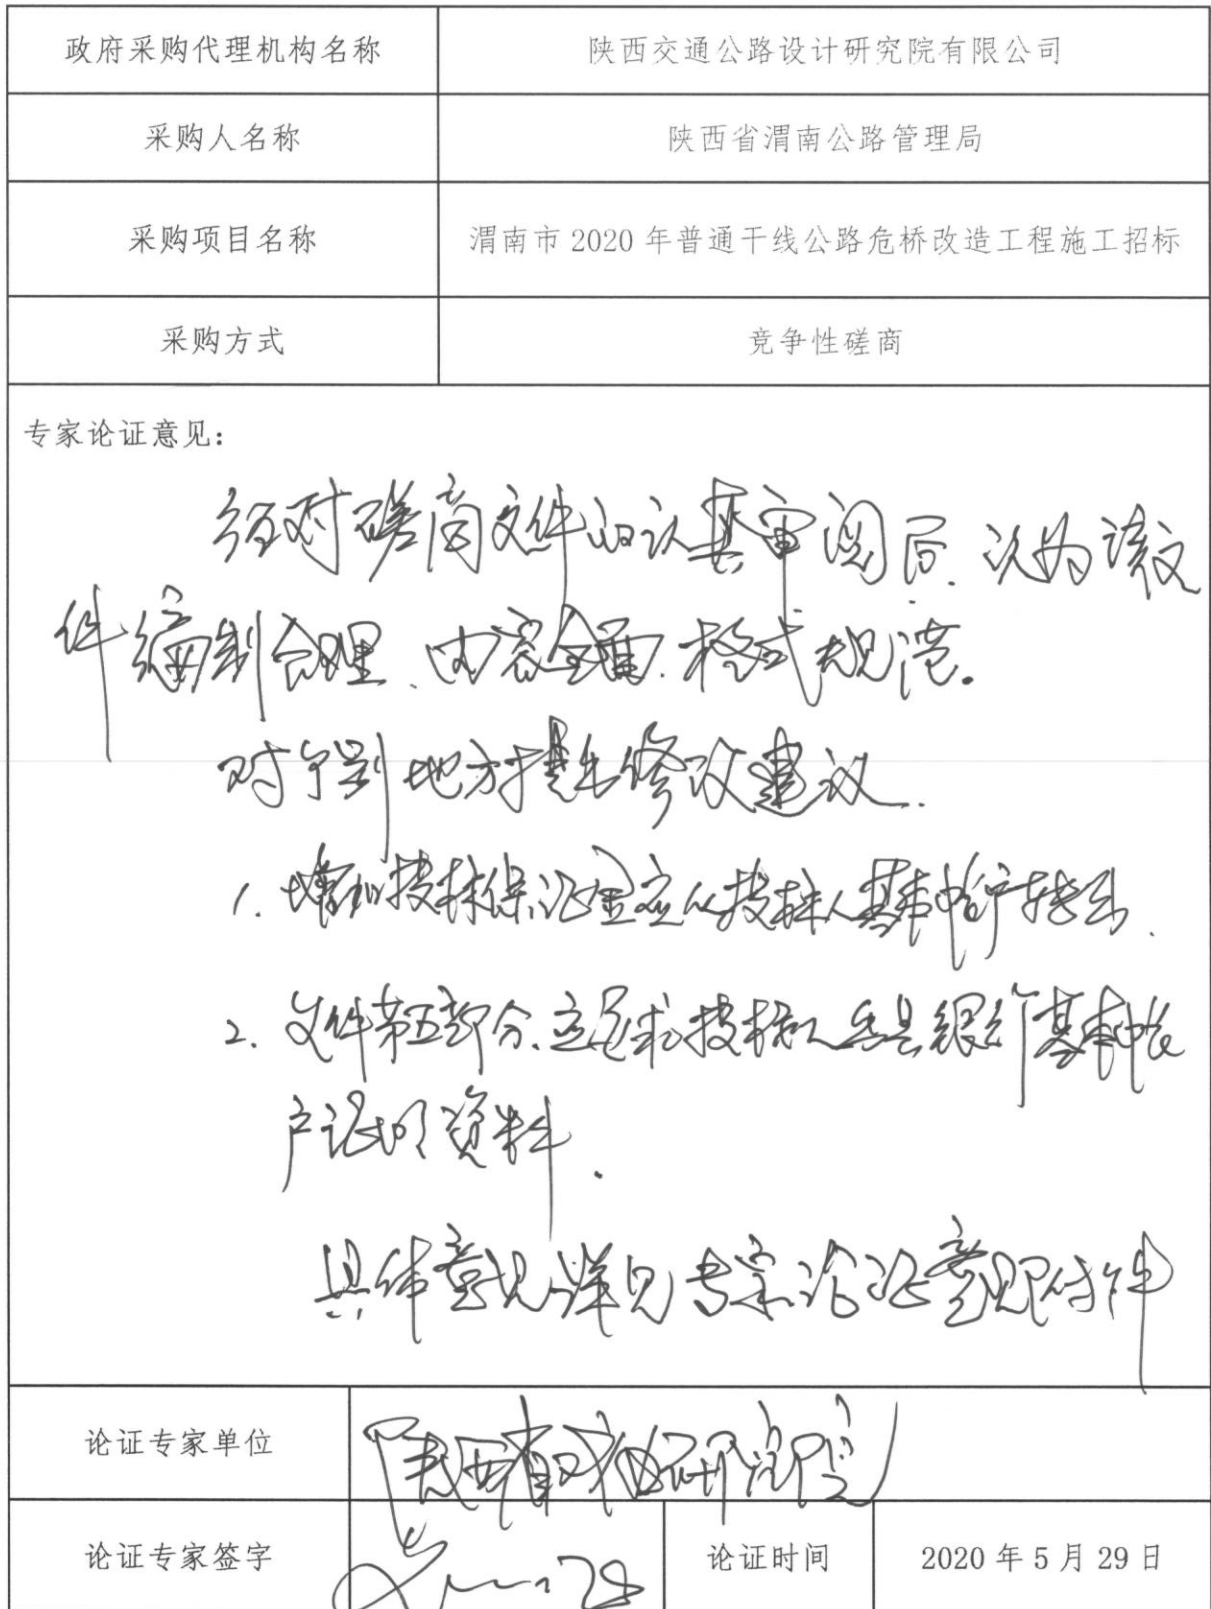 政府采购代理机构名称 陕西交通公路设计研究院有限公司
采购人名称 陕西省渭南公路管理局
采购项目名称 渭南市 2020 年普通干线公路危桥改造工程施工招标
采购方式 竞争性磋商
专家论证意见：
经对磋商文件的认真审阅后、认为该文
件编制合理、内容全面、格式规范。
对个别地方提出修改建议.
1. 增加投标保证金应从投标人基本帐户转出.
2. 文件第五部分、应要求投标人出具银行基本帐
户证明资料.
具体意见详见专家论证意见附件
论证专家单位 陕西省 研究院
论证专家签字 论证时间 2020 年 5 月 29 日